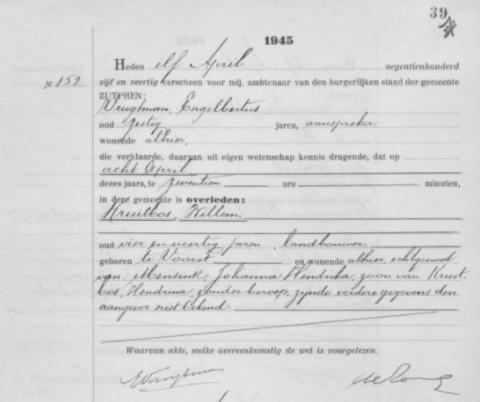 39
1945
Heden elf April negentienhonderd
№ 152
vijf en veertig verscheen voor mij, ambtenaar van den burgerlijken stand der gemeente
ZUTPHEN:
Vrugtman, Engelbertus
oud zestig jaren, aanspreker
wonende alhier,
die verklaarde, daarvan uit eigen wetenschap kennis dragende, dat op
acht April
dezes jaars, te zeventien ure minuten,
in deze gemeente is overleden:
Kruitbos, Willem,
oud vier en veertig jaren, landbouwer
geboren te Voorst en wonende alhier, echtgenoot
van Mensink, Johanna Hendrika, zoon van Kruit-
bos, Hendrina, zonder beroep, zijnde verdere gegevens den
aangever niet bekend.
Waarvan akte, welke overeenkomstig de wet is voorgelezen.